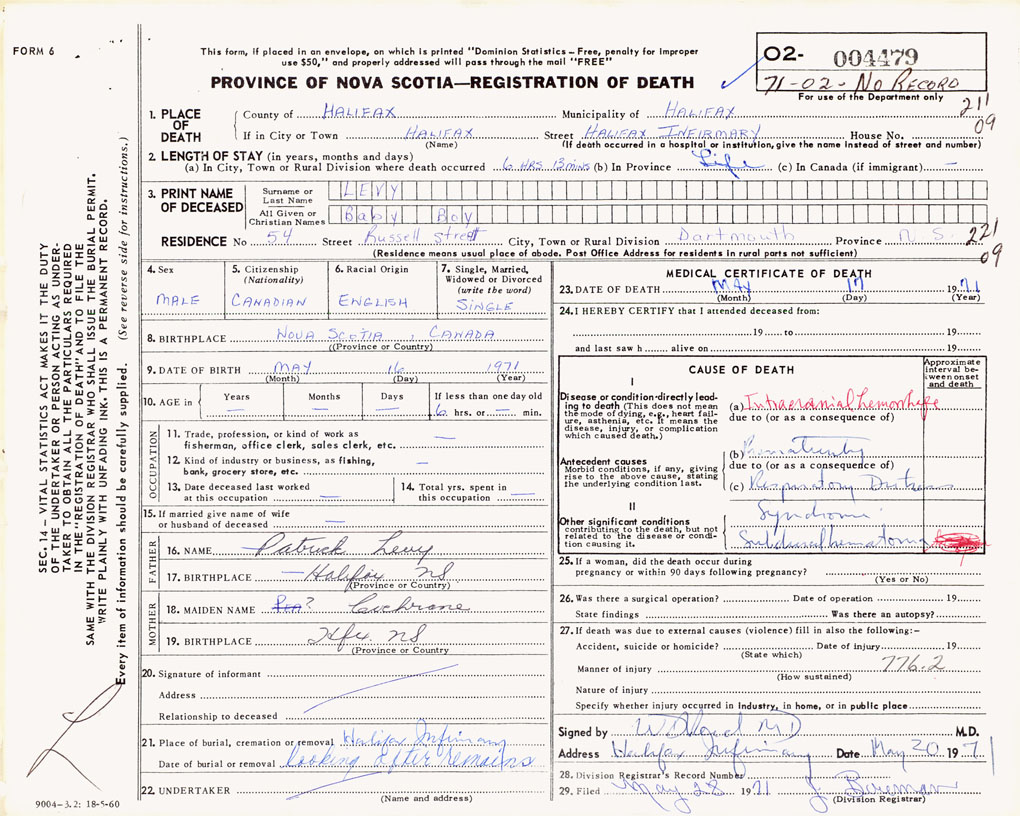 FORM 6
This form, if placed in an envelope, on which is printed "Dominion Statistics – Free, penalty for improper
use $50," and properly addressed will pass through the mail "FREE"
PROVINCE OF NOVA SCOTIA—REGISTRATION OF DEATH
02- 004479
71-02- NO RECORD
For use of the Department only
211
09
1. PLACE OF DEATH
County of HALIFAX Municipality of HALIFAX
If in City or Town HALIFAX Street HALIFAX INFIRMARY House No.
(Name) (If death occurred in a hospital or institution, give the name instead of street and number)
2. LENGTH OF STAY (in years, months and days)
(a) In City, Town or Rural Division where death occurred 6 HRS 13 mins (b) In Province Life (c) In Canada (if immigrant) —
3. PRINT NAME OF DECEASED
Surname or Last Name LEVY
All Given or Christian Names Baby Boy
RESIDENCE No 54 Street Russell Street City, Town or Rural Division Dartmouth Province N.S.
221
09
(Residence means usual place of abode. Post Office Address for residents in rural parts not sufficient)
4. Sex
MALE
5. Citizenship
(Nationality)
CANADIAN
6. Racial Origin
ENGLISH
7. Single, Married,
Widowed or Divorced
(write the word)
SINGLE
8. BIRTHPLACE NOVA SCOTIA, CANADA
((Province or Country)
9. DATE OF BIRTH MAY 16 1971
(Month) (Day) (Year)
10. AGE in Years — Months — Days — If less than one day old
6 hrs. or — min.
OCCUPATION
11. Trade, profession, or kind of work as
fisherman, office clerk, sales clerk, etc. —
12. Kind of industry or business, as fishing,
bank, grocery store, etc. —
13. Date deceased last worked
at this occupation —
14. Total yrs. spent in
this occupation —
15. If married give name of wife
or husband of deceased —
FATHER
16. NAME Patrick Levy
17. BIRTHPLACE Halifax NS
(Province or Country)
MOTHER
18. MAIDEN NAME ? Cochrane
19. BIRTHPLACE Hfx. NS
(Province or Country
20. Signature of informant
Address
Relationship to deceased
21. Place of burial, cremation or removal Halifax Infirmary
Date of burial or removal looking after remains
22. UNDERTAKER
(Name and address)
9004–3.2: 18-5-60
MEDICAL CERTIFICATE OF DEATH
23. DATE OF DEATH MAY 17 1971
(Month) (Day) (Year)
24. I HEREBY CERTIFY that I attended deceased from:
19 to 19
and last saw h alive on 19
CAUSE OF DEATH
Approximate
interval be-
tween onset
and death
I
Disease or condition directly lead-
ing to death (This does not mean
the mode of dying, e.g., heart fail-
ure, asthenia, etc. It means the
disease, injury, or complication
which caused death.)
(a) Intracranial hemorrhage
due to (or as a consequence of)
Antecedent causes
Morbid conditions, if any, giving
rise to the above cause, stating
the underlying condition last.
(b) Prematurity
due to (or as a consequence of)
(c) Respiratory Distress
Syndrome
II
Other significant conditions
contributing to the death, but not
related to the disease or condi-
tion causing it.
Subdural hematoma
25. If a woman, did the death occur during
pregnancy or within 90 days following pregnancy?
(Yes or No)
26. Was there a surgical operation? Date of operation 19
State findings Was there an autopsy?
27. If death was due to external causes (violence) fill in also the following:–
Accident, suicide or homicide? Date of injury 19
(State which)
Manner of injury 776.2
(How sustained)
Nature of injury
Specify whether injury occurred in industry, in home, or in public place
Signed by M D M.D.
Address Halifax Infirmary Date May 20 1971
28. Division Registrar's Record Number
29. Filed May 28 1971 J. Bowman
(Division Registrar)
SEC. 14 – VITAL STATISTICS ACT MAKES IT THE DUTY
OF THE UNDERTAKER OR PERSON ACTING AS UNDER-
TAKER TO OBTAIN ALL THE PARTICULARS REQUIRED
IN THE "REGISTRATION OF DEATH" AND TO FILE THE
SAME WITH THE DIVISION REGISTRAR WHO SHALL ISSUE THE BURIAL PERMIT.
WRITE PLAINLY WITH UNFADING INK. THIS IS A PERMANENT RECORD.
Every item of information should be carefully supplied. (See reverse side for instructions.)